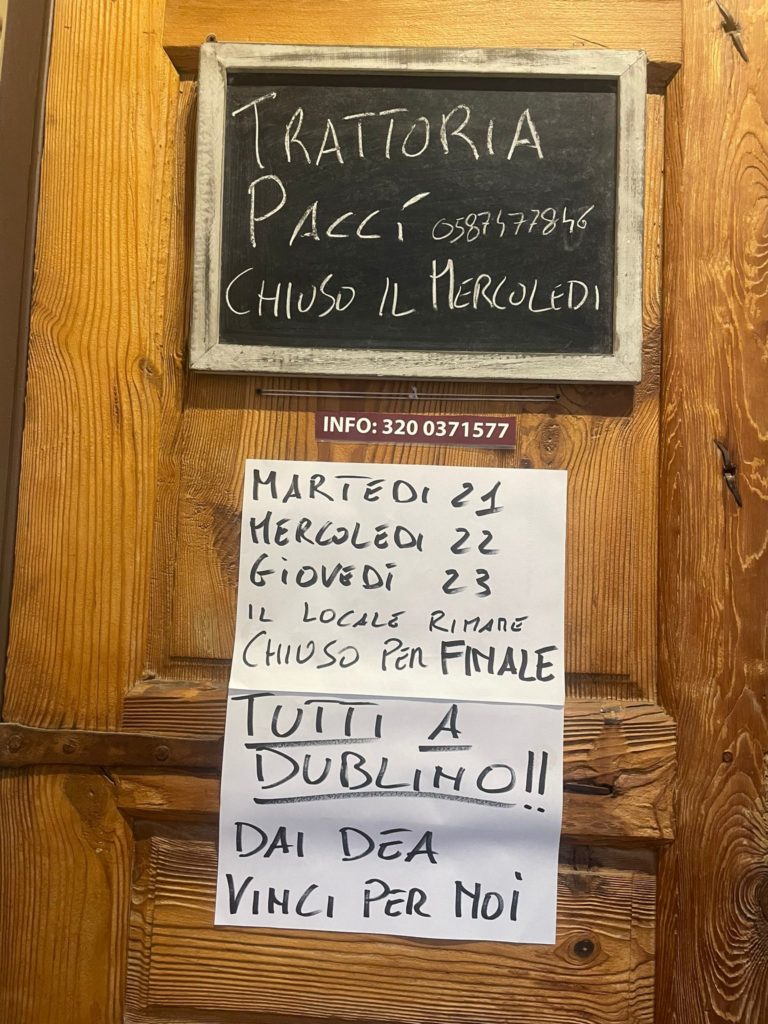 TRATTORIA
PACCÍ 0587477846
CHIUSO IL MERCOLEDI
INFO: 320 0371577
MARTEDI 21
MERCOLEDI 22
GIOVEDÍ 23
IL LOCALE RIMANE
CHIUSO PER FINALE
TUTTI A
DUBLINO!!
DAI DEA
VINCI PER NOI